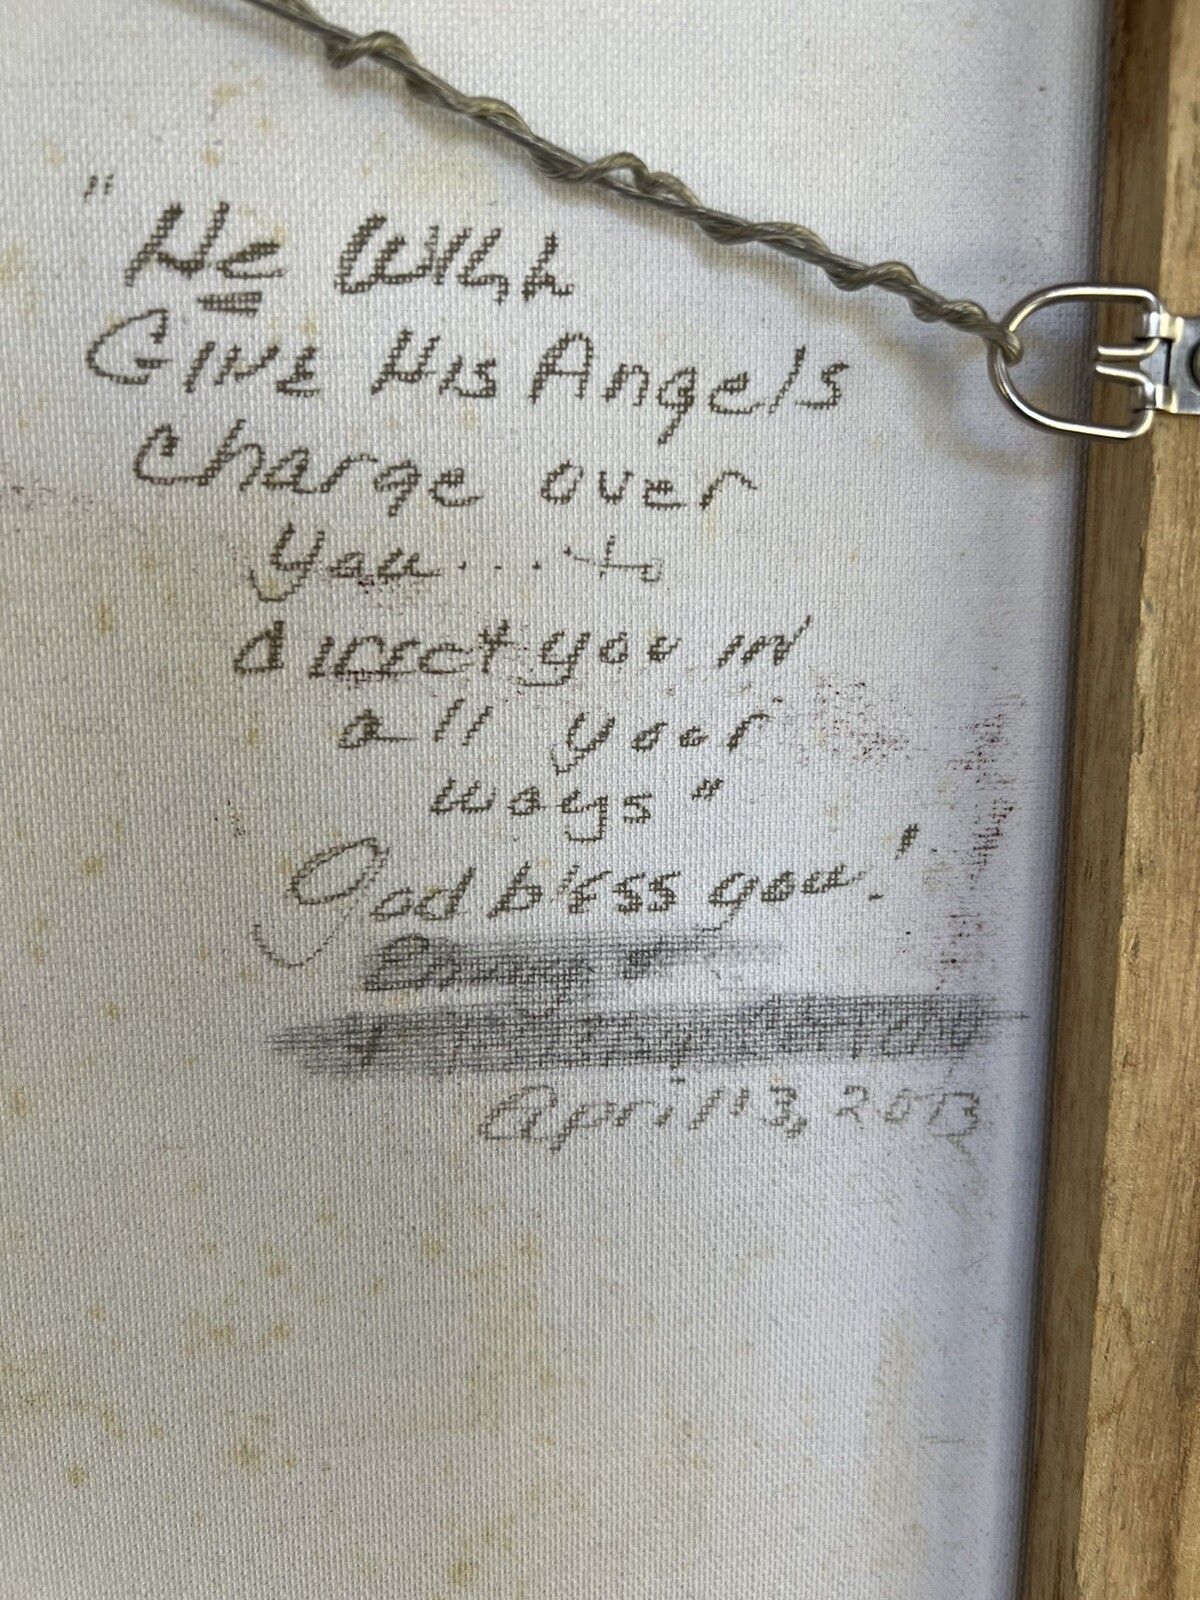 "He Will
Give His Angels
charge over
you.... to
direct you in
all your
ways"
God bless you!
April 13, 2013